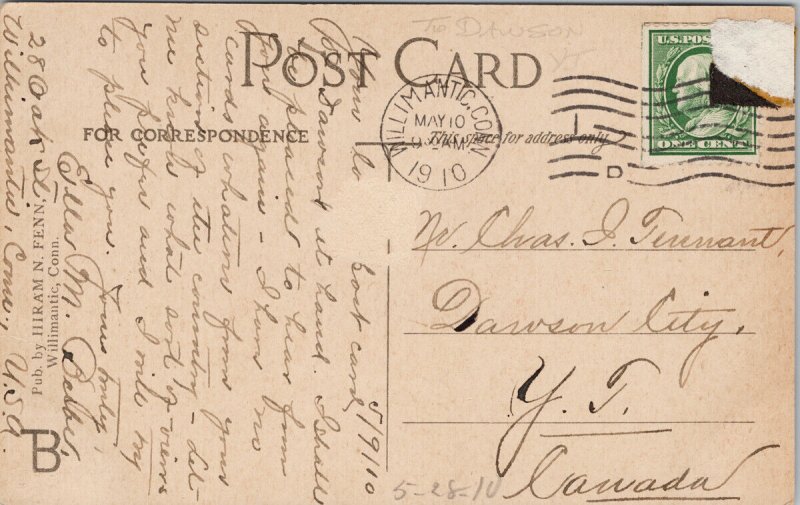 To DAWSON
YT
POST CARD
U.S.POS
ONE CENT
FOR CORRESPONDENCE
This space for address only
WILLIMANTIC, CONN.
MAY 10
AM
1910
D
Mr. Chas. J. Tennant,
Dawson City,
Y. T.
Canada
5-28-10
5/9/10
Yours post card
Dawson at hand. I shall
be pleased to hear from
you again - I have no
cards whatever from your
section of the country - Let
me know what sort of views
you prefer and I will try
to please you. Yours truly,
Ella M.
28 Oak St.,
Willimantic, Conn., U.S.A.
Pub. by HIRAM N. FENN,
Willimantic, Conn.
B